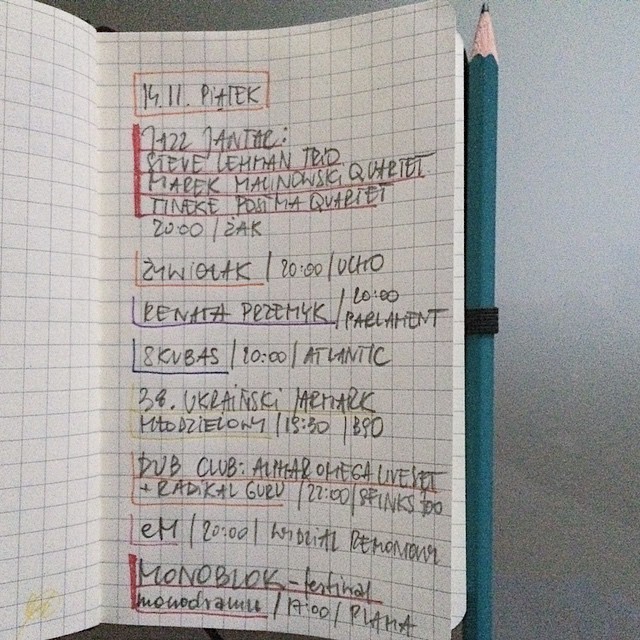 14.11. PIĄTEK
JAZZ JANTAR:
STEVE LEHMAN TRIO
MAREK MALINOWSKI QUARTET
TINEKE POSTMA QUARTET
20:00 / ŻAK
ŻYWIOŁAK / 20:00 / UCHO
RENATA PRZEMYK / 20:00
PARLAMENT
SKUBAS / 20:00 / ATLANTIC
38. UKRAIŃSKI JARMARK
MŁODZIEŻOWY / 15:30 /
DUB CLUB: ALPHA & OMEGA LIVESET
+ RADIKAL GURU / 22:00 / SFINKS 700
eM / 20:00 / WYDZIAŁ REMONTOWY
MONOBLOK - festiwal
monodramu / 17:00 / PLAMA